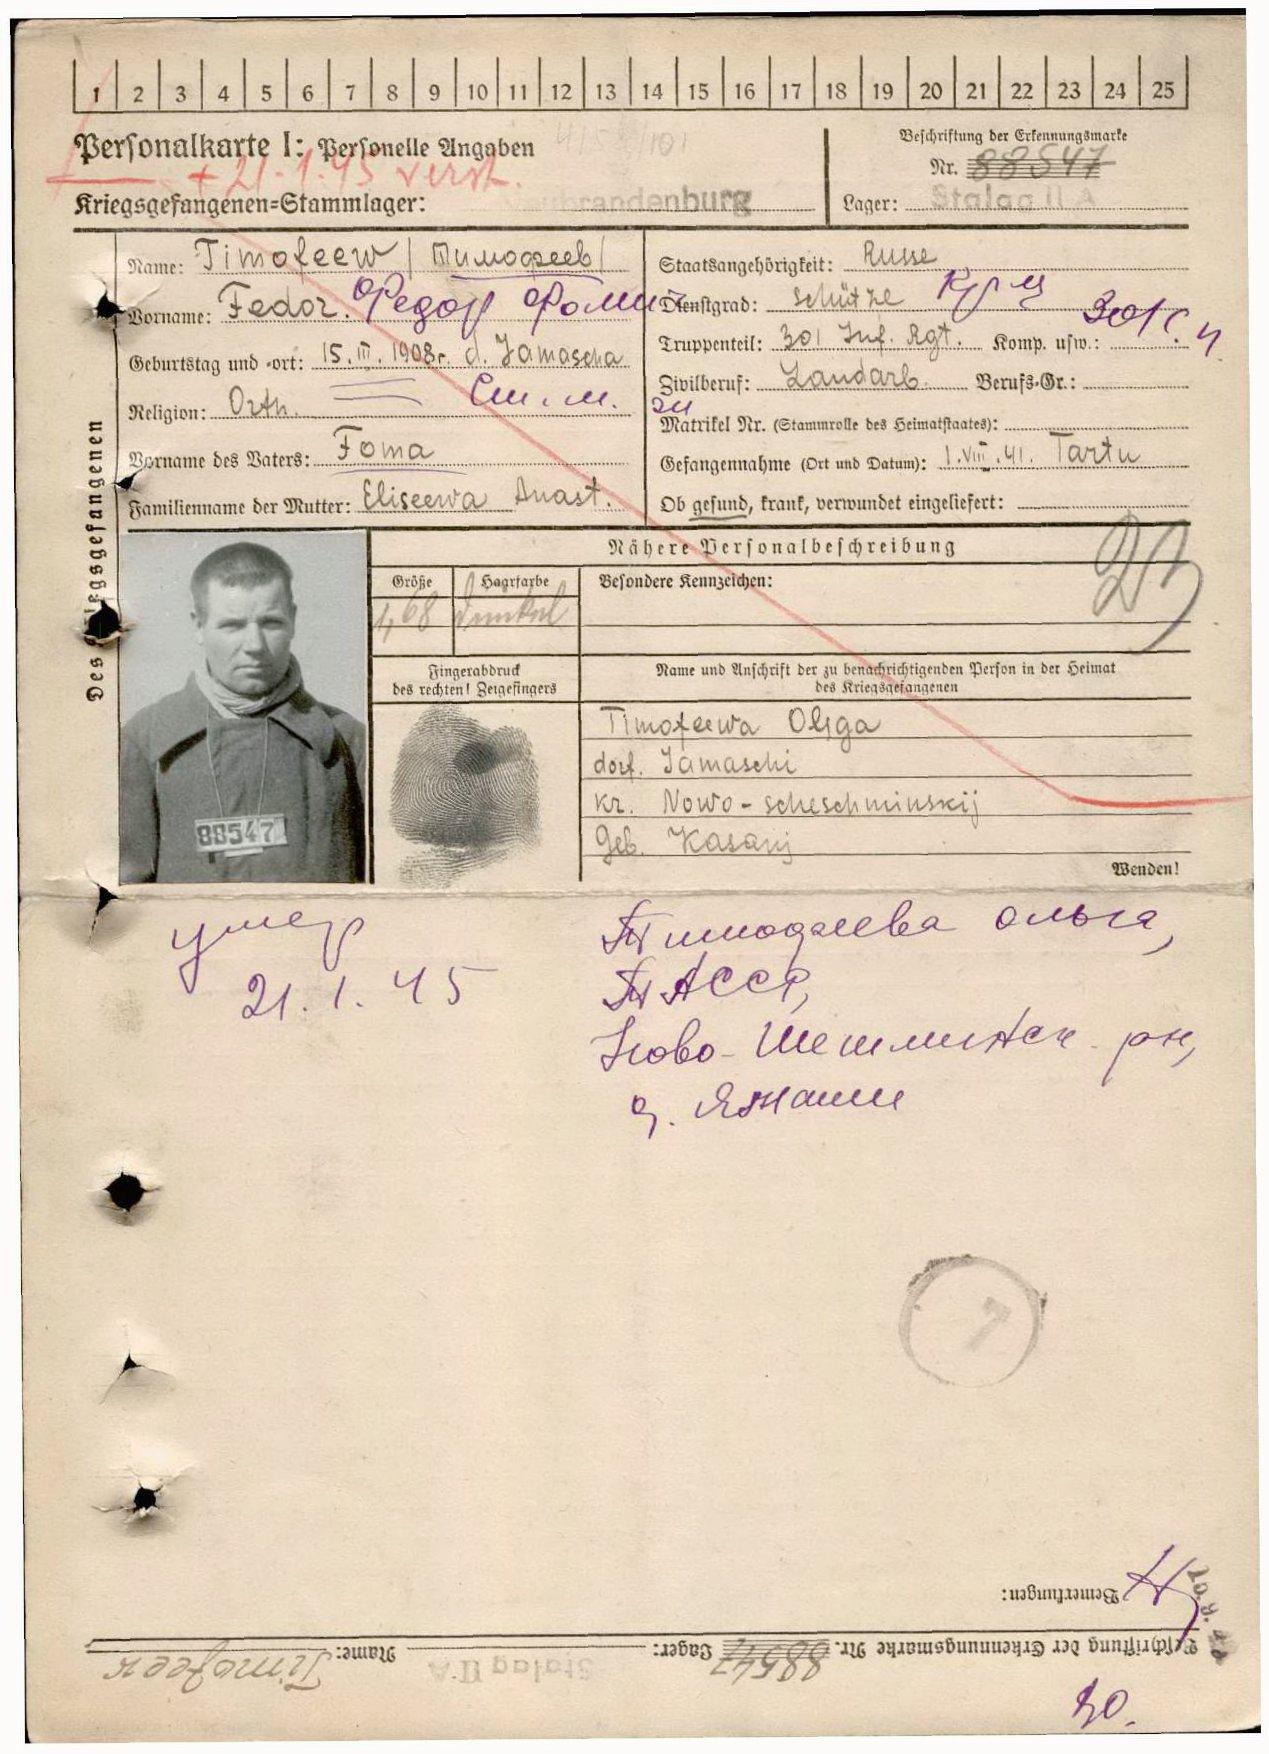 1 2 3 4 5 6 7 8 9 10 11 12 13 14 15 16 17 18 19 20 21 22 23 24 25
Personalkarte I: Personelle Angaben
+ 21.1.45 verst.
Kriegsgefangenen=Stammlager: Neubrandenburg
Beschriftung der Erkennungsmarke
Nr. 88547
Lager: Stalag II A
Des Kriegsgefangenen
Name: Timofeew / Тимофеев /
Vorname: Fedor. Федор Фомич
Geburtstag und -ort: 15.III.1908г. d. Jamascha
Religion: Orth.
Vorname des Vaters: Foma
Familienname der Mutter: Eliseewa Anast.
Staatsangehörigkeit: Russe
Dienstgrad: Schütze Кр-ц
Truppenteil: 301 Inf. Rgt. Komp. usw.:
Zivilberuf: Landarb. Berufs-Gr.:
Matrikel Nr. (Stammrolle des Heimatstaates):
Gefangennahme (Ort und Datum): 1.VIII.41. Tartu
Ob gesund, krank, verwundet eingeliefert:
Nähere Personalbeschreibung
Größe Haarfarbe Besondere Kennzeichen:
1,68 dunkel
Fingerabdruck
des rechten! Zeigefingers
Name und Anschrift der zu benachrichtigenden Person in der Heimat
des Kriegsgefangenen
88547
Timofeewa Olga
dorf. Jamaschi
Kr. Nowo-scheschminskij
Geb. Kasanj
Wenden!
умер
21.1.45
Тимофеева Ольга,
ТАССР,
Ново-Шешминск. рн,
д. Ямаши
7
Bemerkungen:
Beschriftung der Erkennungsmarke Nr. 88547 Lager: Stalag II A Name: Timofeew